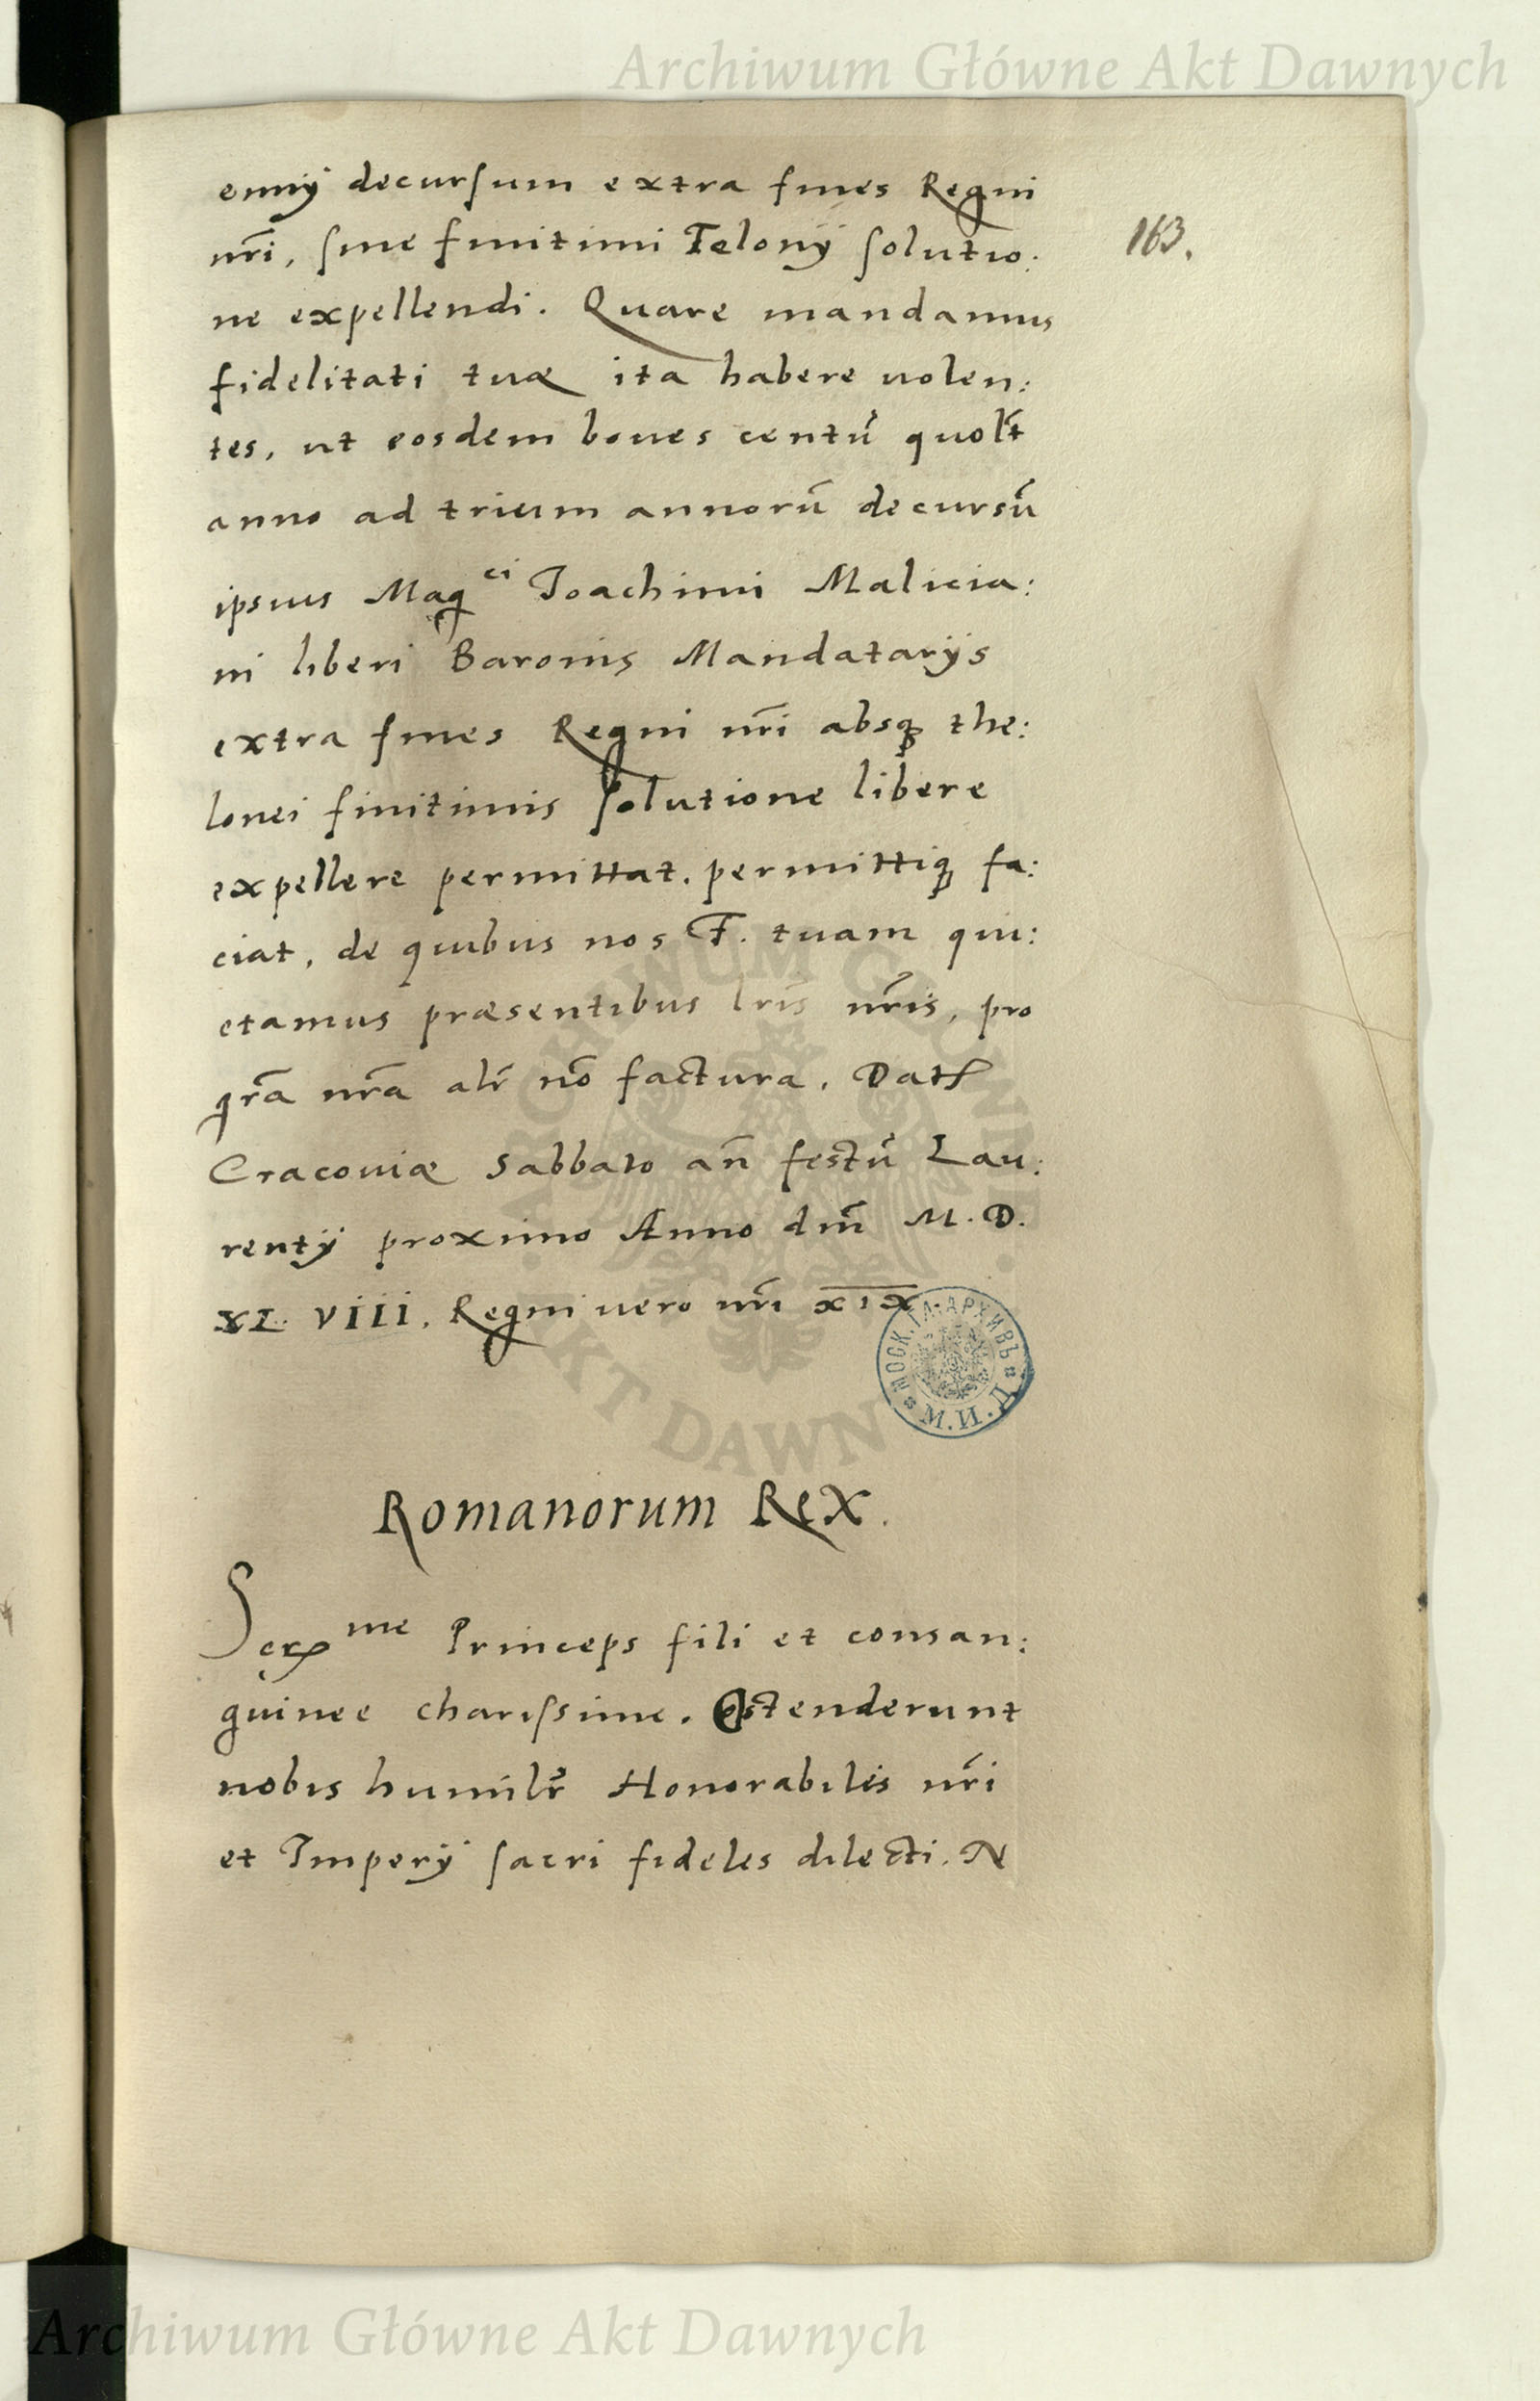 Archiwum Główne Akt Dawnych
ennij decursum extra fines Regni
nr̃i, sine finitimi Telonij solutio:
163.
ne expellendi. Quare mandamus
fidelitati tuæ ita habere uolen:
tes, ut eosdem boues centũ quolt̃
anno ad trium annorũ decursũ
ipsius Mag^ci Joachimi Malicia:
ni liberi Baronis Mandatarijs
extra fines Regni nr̃i absq3 the:
lonei finitimis solutione libere
expellere permittat. permittiq3 fa:
ciat, de quibus nos F. tuam qui:
etamus præsentibus lr̃is nr̃is, pro
gr̃a nr̃a alr̃ nõ factura. Dat
Cracouiæ Sabbato añ festũ Lau:
rentij proximo Anno dñi M. D.
XL. VIII. Regni uero nr̃i XIX.
МОСК. ГЛ. АРХИВЪ
М. И. Д.
ARCHIWUM GŁÓWNE
AKT DAWN
Romanorum Rex.
Ser^me Princeps fili et consan:
guinee charissime. Ostenderunt
nobis humilr̃ Honorabiles nr̃i
et Imperij sacri fideles dilecti. N
Archiwum Główne Akt Dawnych